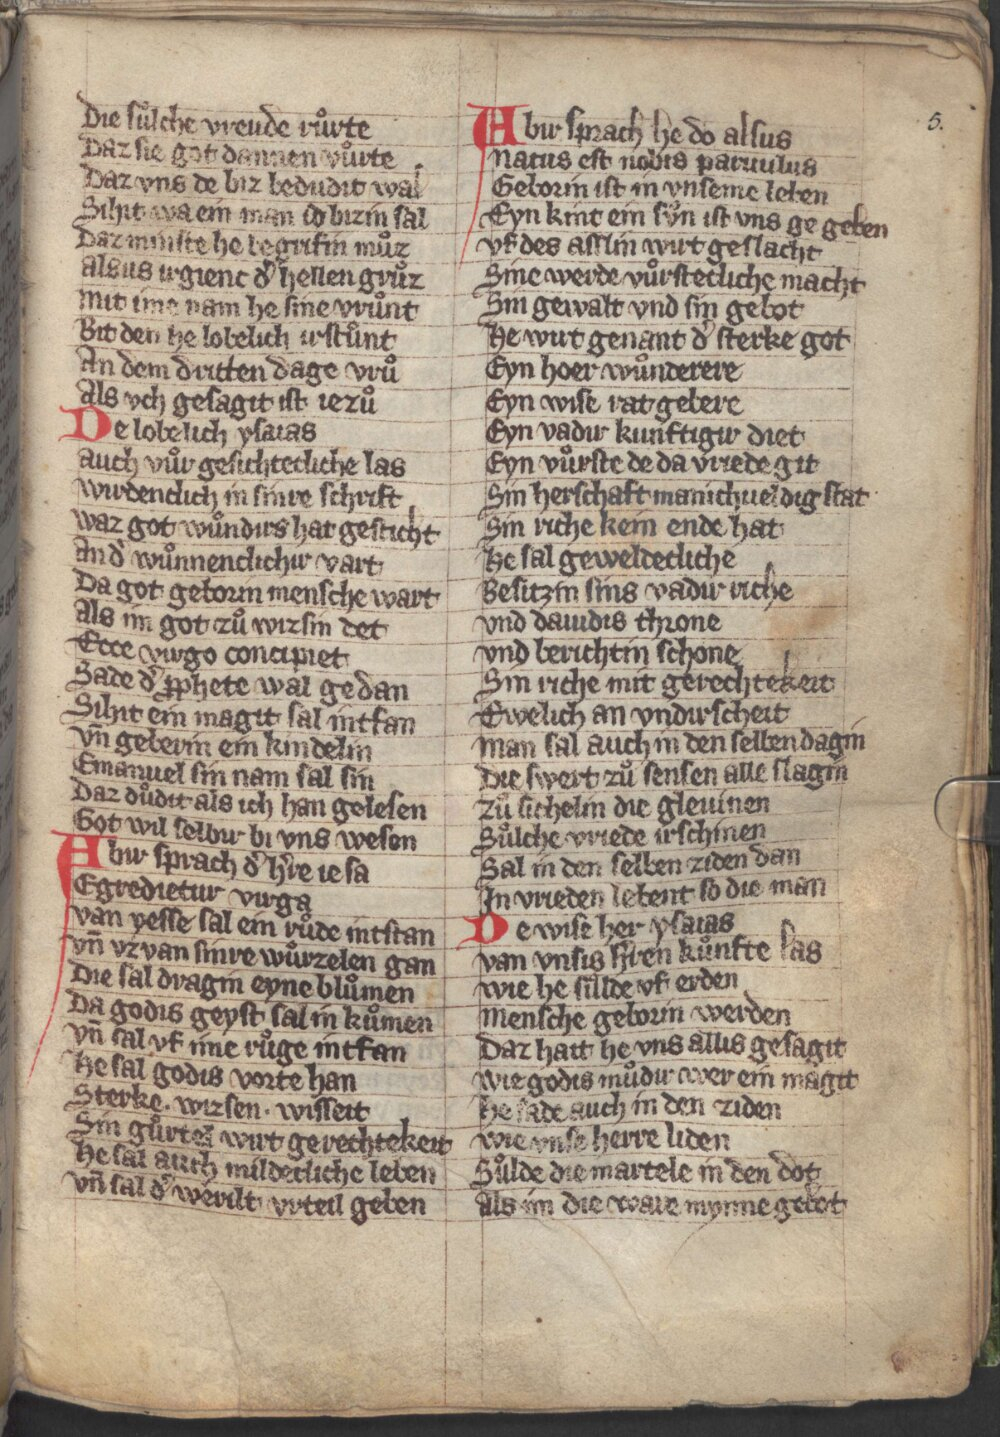 Die sůlche vreude růrte
Daz sie got dannen vůrte
Daz vns de biz bedudit wal
Sihit wa ein man ið bizin sal
Daz minste he begrifin můz
Alsus irgienc d' hellen grůz
Mit ime nam he sine vrůnt
Bit den he lobelich irstůnt
An dem dritten dage vrů
Als vch gesagit ist iezů
De lobelich ysaias
Auch vůr gesichtecliche las
Wirdenclich in sinre schrift
Waz got wůndirs hat gesticht
An d' wůnnenclichir vart
Da got geborin mensche wart
Als im got zů wizsin det
Ecce virgo concipiet
Sade d' pphete wal gedan
Sihit ein magit sal intfan
Vn̄ geberin ein kindelin
Emanuel sin nam sal sin
Daz důdit als ich han gelesen
Got wil selbir bi vns wesen
Abir sprach d' h're iesa
Egredietur virga
Van yesse sal ein růde intstan
Vn̄ vz van sinre wůrzelen gan
Die sal dragin eyne blůmen
Da godis geyst sal in kůmen
Vn̄ sal vf ime růge intfan
He sal godis vorte han
Sterke · wizsen · wisseit
Sin gůrtel wirt gerechtekeit
He sal auch mildecliche leben
Vn̄ sal d' werilt vrteil geben
5.
Abir sprach he do alsus
Natus est nobis paruulus
Geborin ist in vnseme leben
Eyn kint ein sůn ist vns ge geben
Vf des asslin wirt geslacht
Sine werde vůrstecliche macht
Sin gewalt vnd sin gebot
He wirt genant d' sterke got
Eyn hoer wůnderere
Eyn wise rat gebere
Eyn vadir kunftigir diet
Eyn vůrste de da vriede git
Sin herschaft manichueldig stat
Sin riche kein ende hat
He sal geweldecliche
Besitzin sins vadir riche
Vnd dauidis throne
Vnd berichtin schone
Sin riche mit gerechtekeit
Ewelich an vndirscheit
Man sal auch in den selben dagin
Die swert zů sensen alle slagin
Zů sichelin die gleuinen
Sůlche vriede irschinen
Sal in den selben ziden dan
In vrieden lebent so die man
De wise her ysaias
Van vnsis h'ren kůnfte las
Wie he sůllde vf erden
Mensche geborin werden
Daz hait he vns allis gesagit
Wie godis můdir wer ein magit
He sade auch in den ziden
Wie vnse herre liden
Sůlde die martele in den dot
Als im die ware mynne gebot